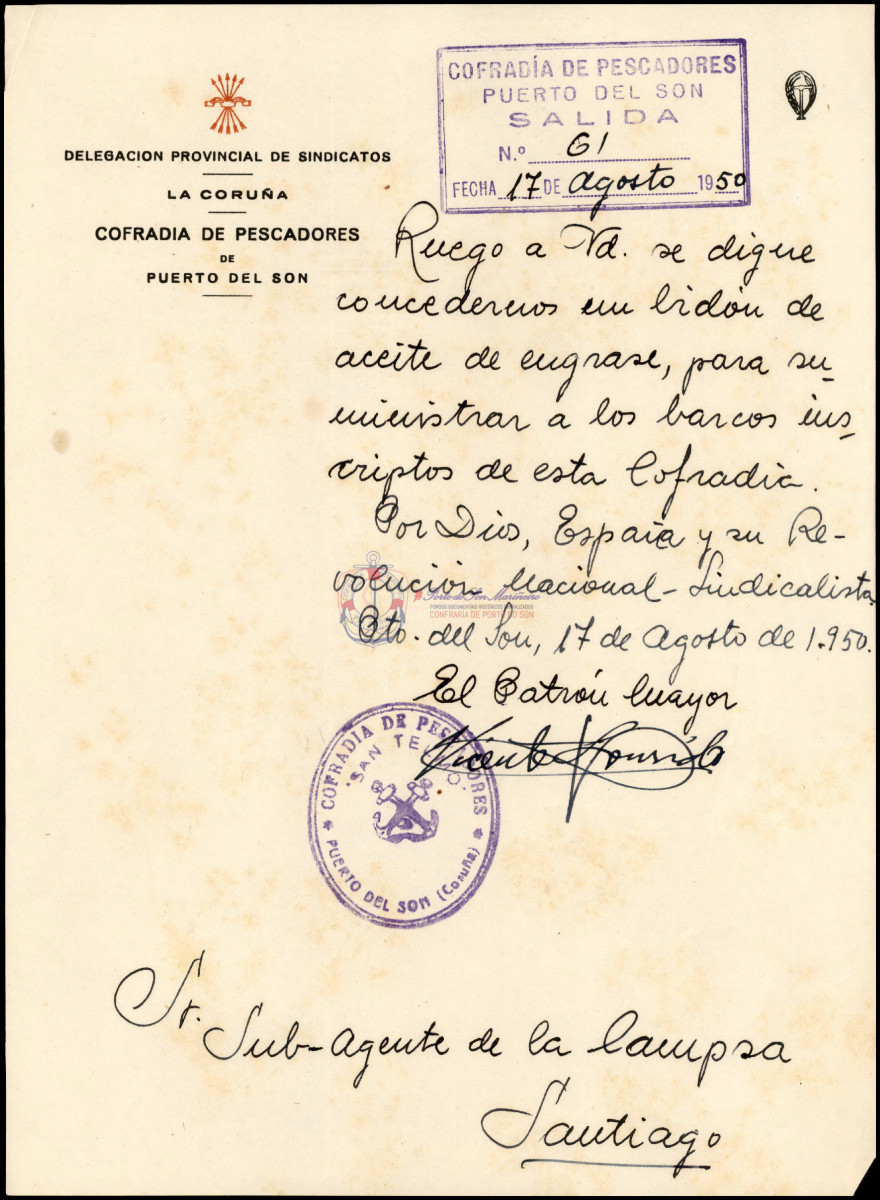 DELEGACION PROVINCIAL DE SINDICATOS
LA CORUÑA
COFRADIA DE PESCADORES
DE
PUERTO DEL SON
COFRADÍA DE PESCADORES
PUERTO DEL SON
SALIDA
N.º 61
FECHA 17 DE Agosto 1950
Ruego a Vd. se digne
concedernos un bidón de
aceite de engrase, para su-
ministrar a los barcos ins-
criptos de esta Cofradía.
Por Dios, España y su Re-
volución Nacional-Sindicalista
Pto. del Son, 17 de Agosto de 1.950.
El Patrón Mayor
Vicente
Porto do Son Mariñeiro
FONDOS DOCUMENTAIS HISTÓRICOS DIXITALIZADOS
CONFRARÍA DE PORTO DO SON
COFRADIA DE PESCADORES
"SAN TELMO"
PUERTO DEL SON (Coruña)
Sr.
Sub-Agente de la Campsa
Santiago